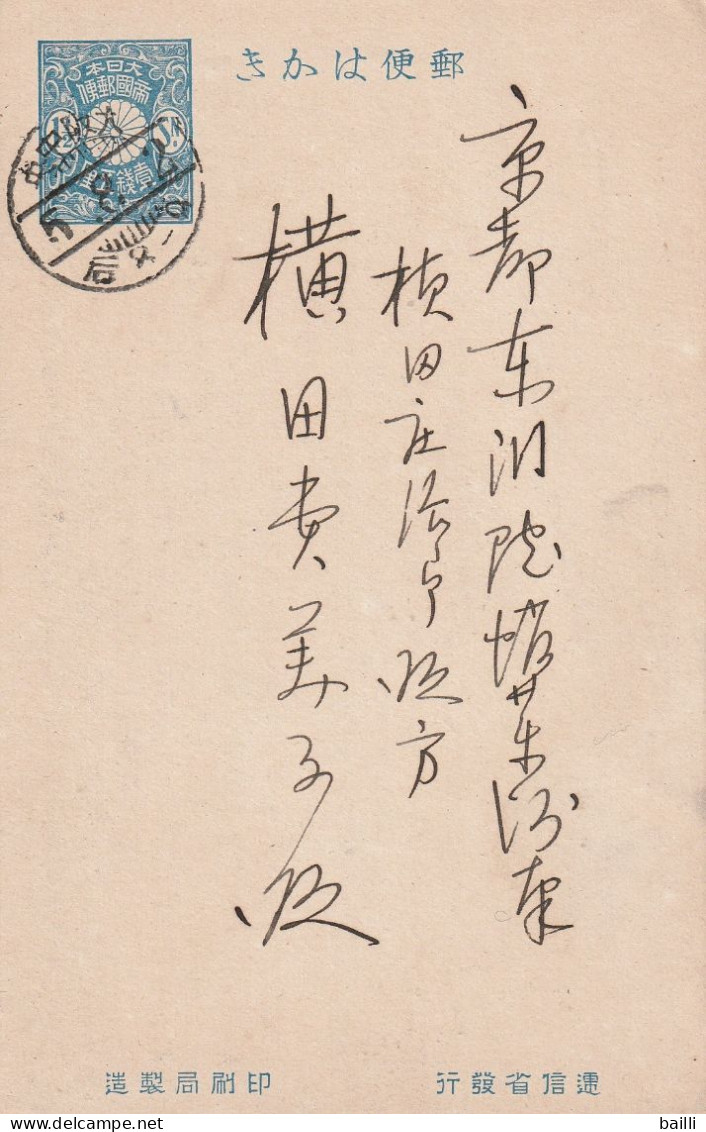 郵便はかき
大日本
帝國郵便
壹錢五厘
京都東洞院蛸薬師東
横田庄治郎殿方
横田貴美子殿
逓信省發行
印刷局製造
bailli